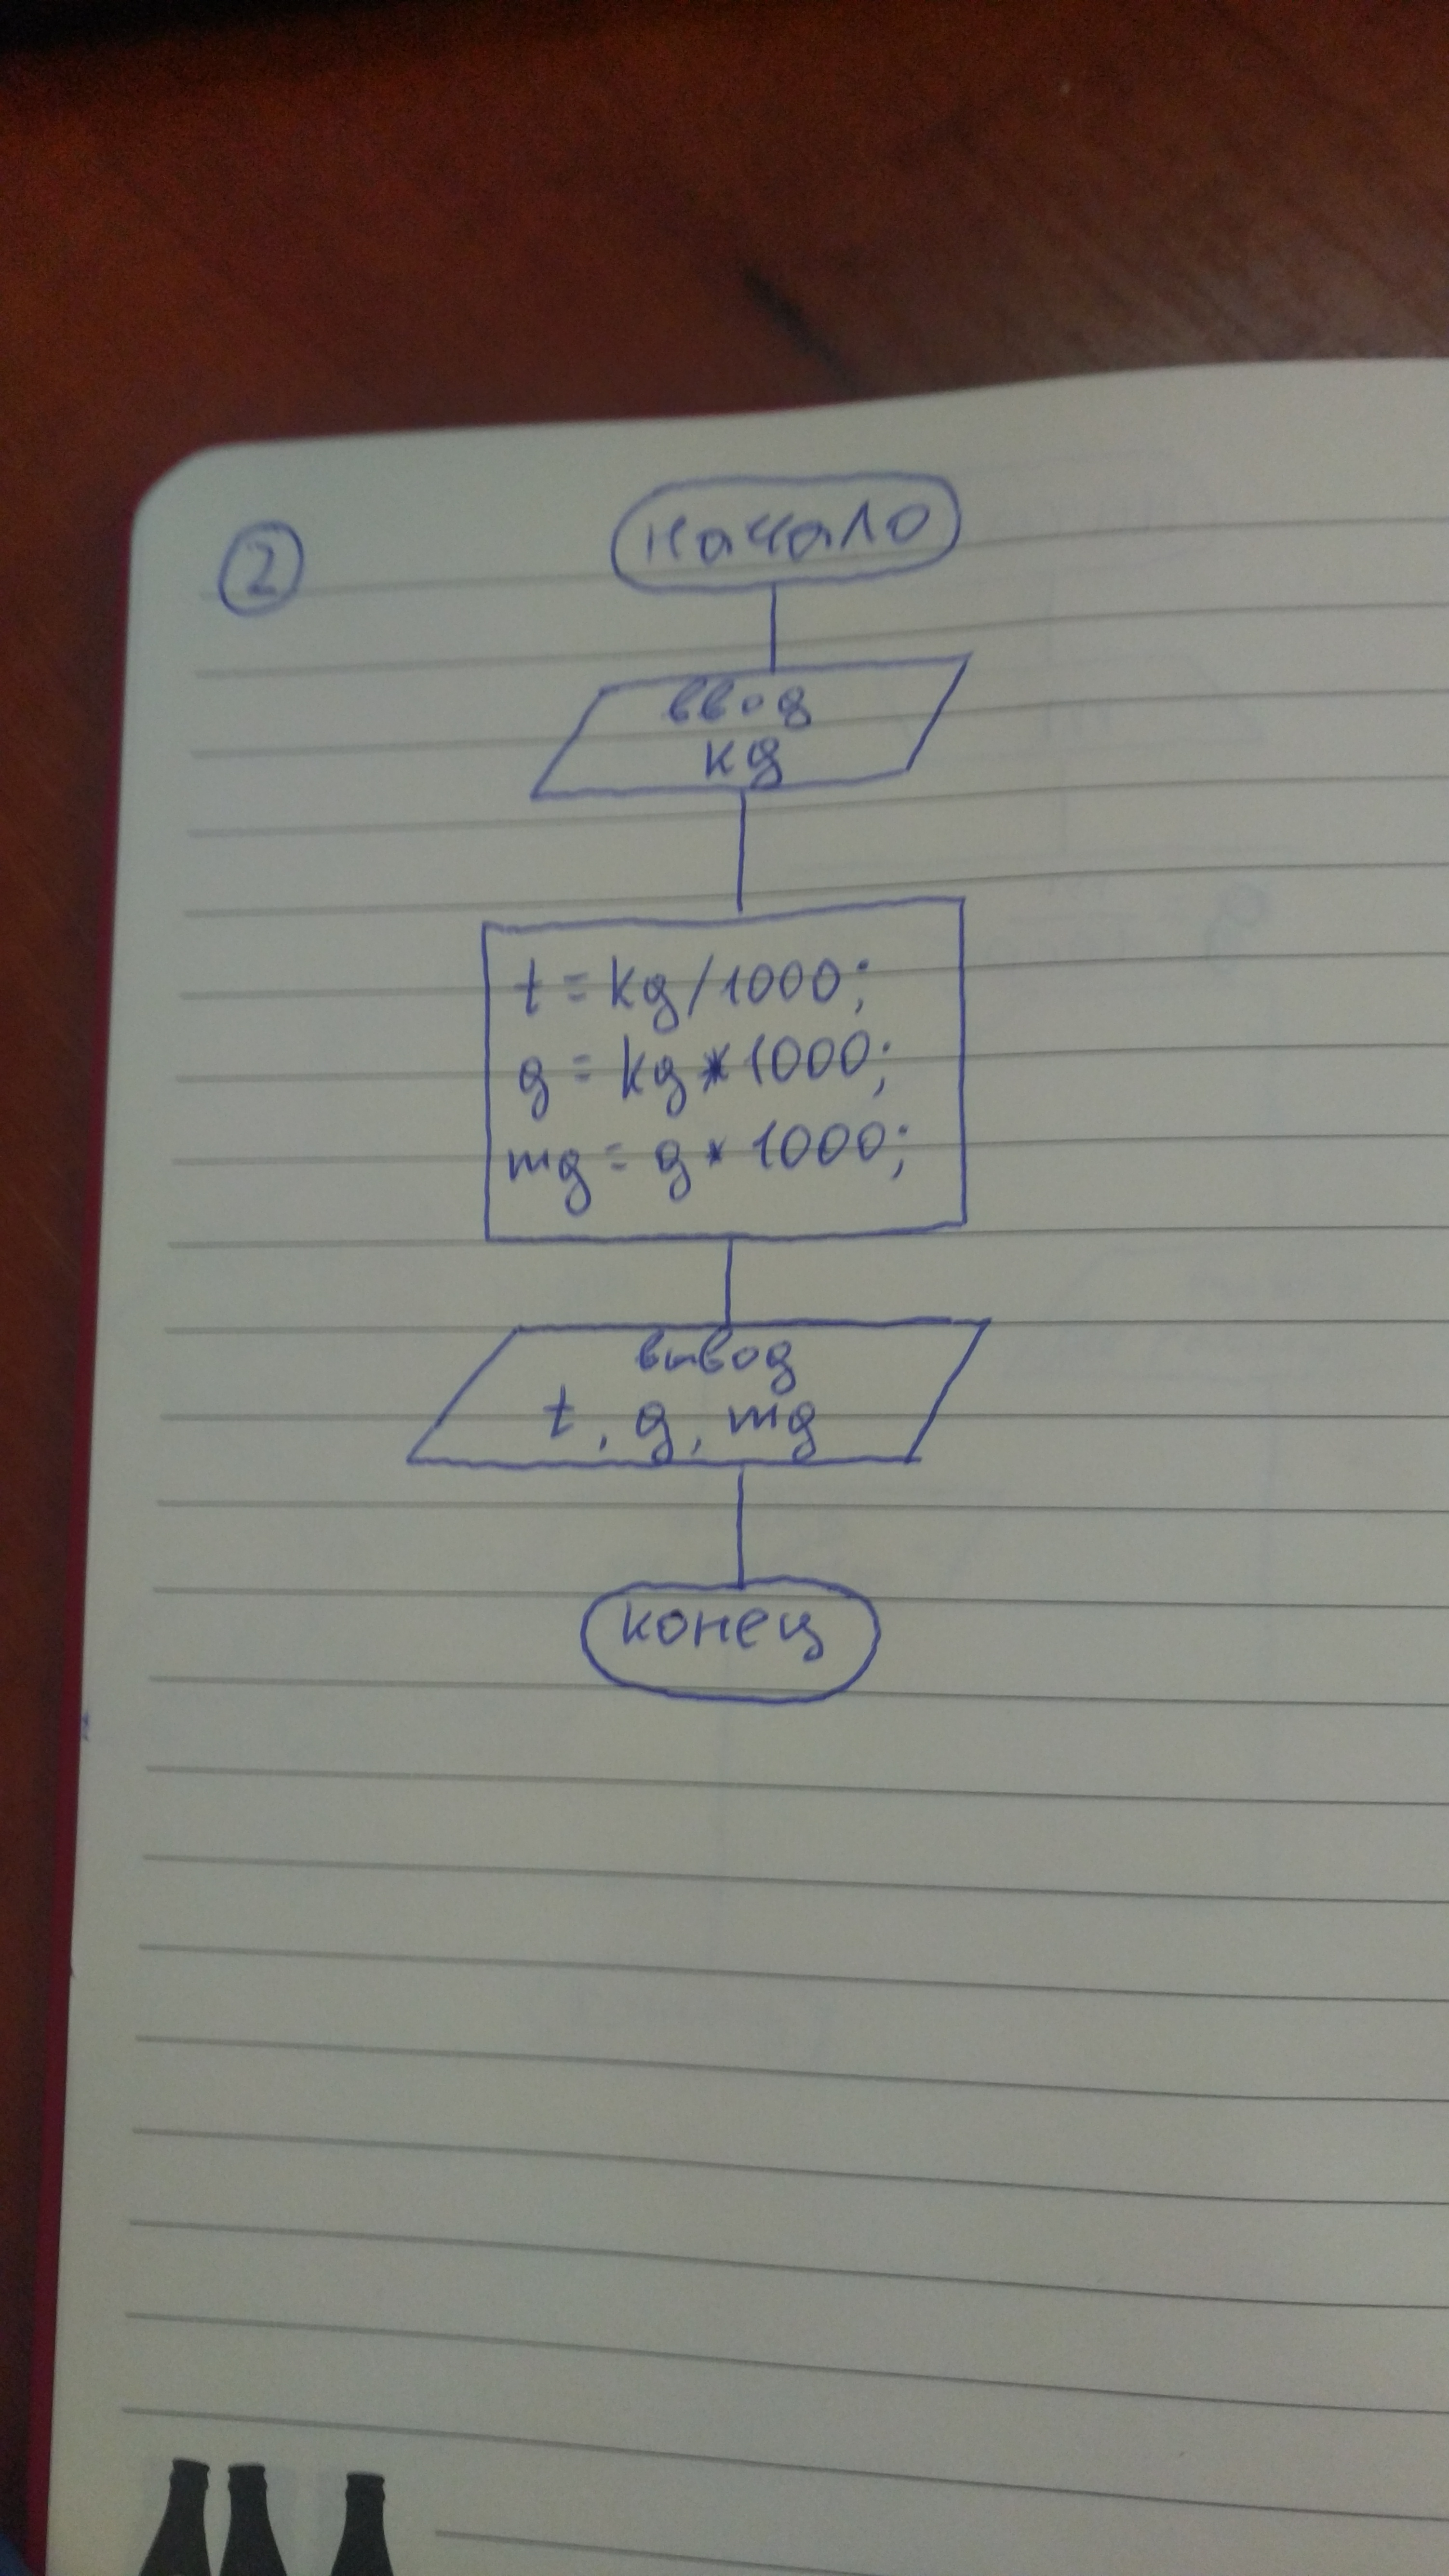 2
начало
ввод
kg
t = kg/1000;
g = kg*1000;
mg = g*1000;
вывод
t, g, mg
конец